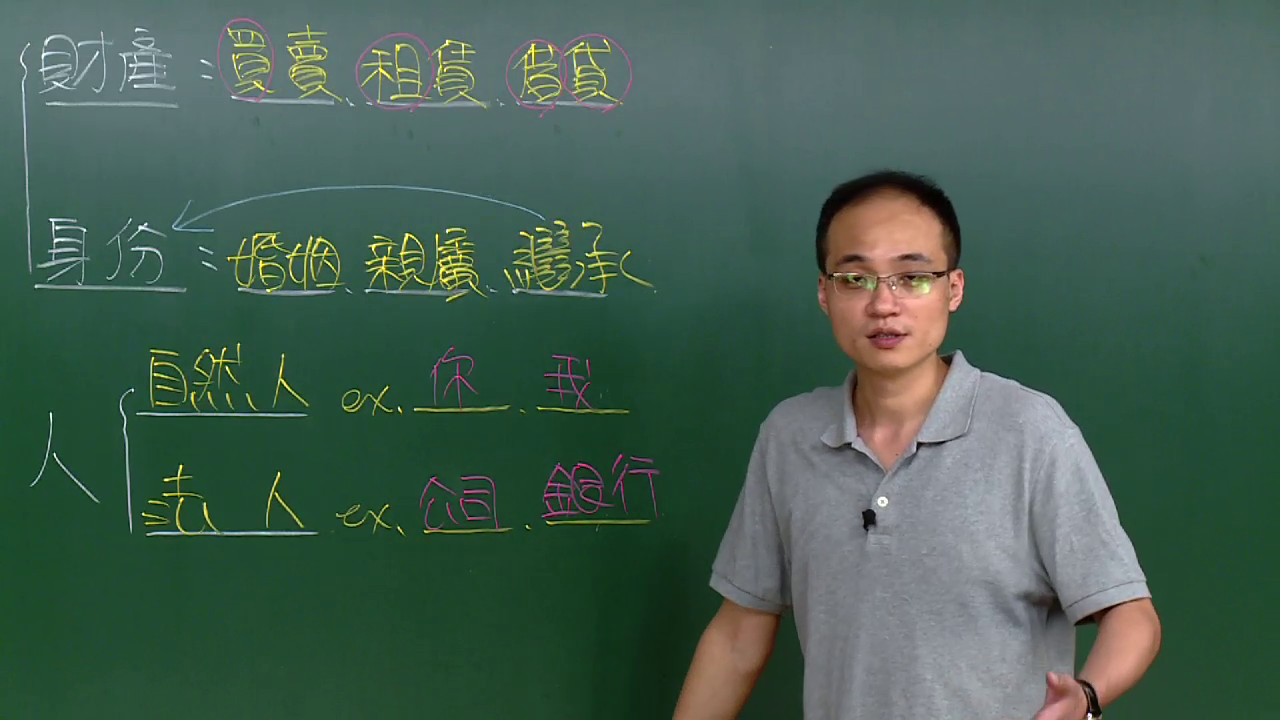 財產：買賣、租賃、借貸
身份：婚姻、親屬、繼承
人
自然人 ex. 你、我
法人 ex. 公司、銀行